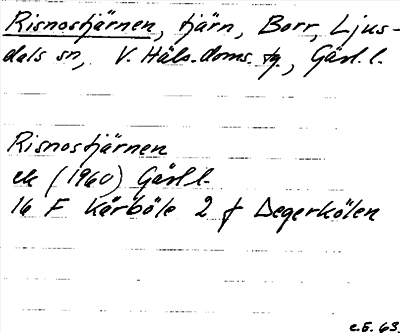 Risnostjärnen, tjärn, Borr, Ljus-
dals sn, V. Häls. doms. tg., Gävl. l.
Risnostjärnen
ek (1960) Gävl l.
16 F Kårböle 2 f Degerkölen
C.E. 63.